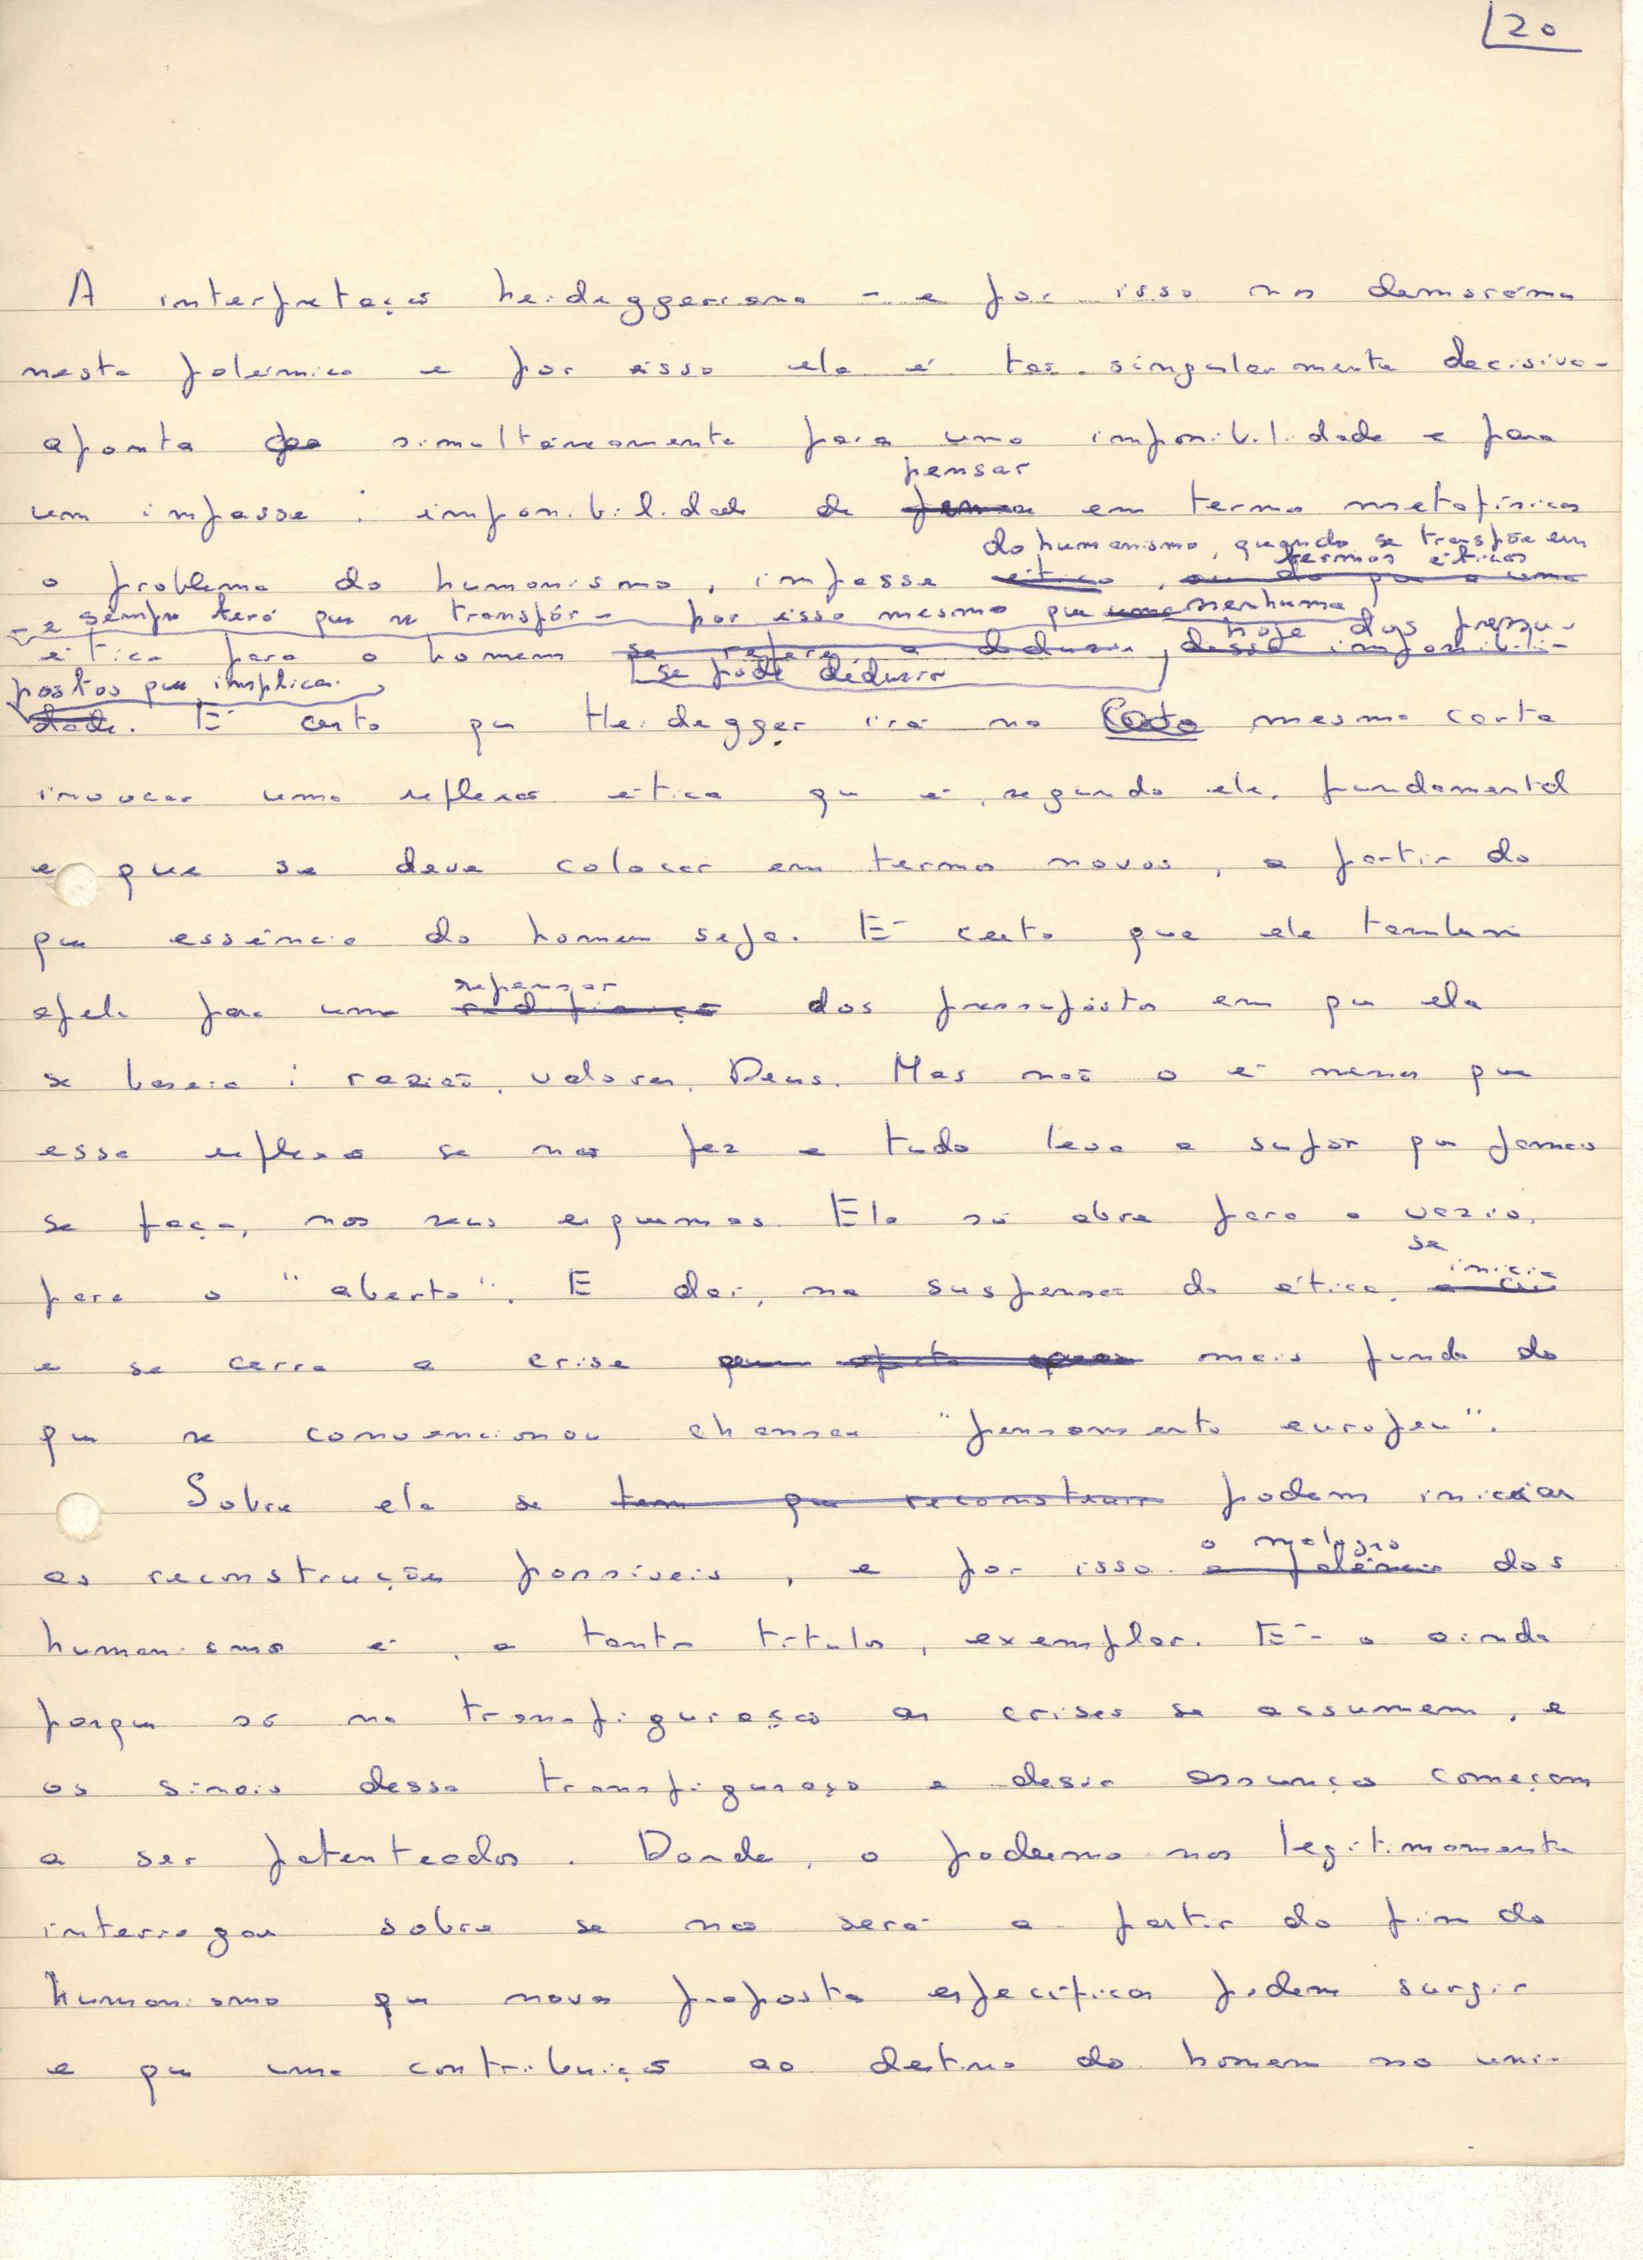 20
A interpretação heideggeriana - e por isso nos demorámos
nesta polémica e por isso ela é tão singularmente decisiva -
aponta simultâneamente para uma impossibilidade e para
pensar
um impasse: impossibilidade de em termos metafísicos
do humanismo, quando se transpõe em
termos éticos
o problema do humanismo, impasse ético, ou do que a uma
- e sempre terá que se transpôr - por isso mesmo que uma nenhuma
hoje dos pressu-
ética para o homem se refere a deduzir, dessa impossibili-
se pode deduzir
postos que implica.
dade. É certo que Heidegger irá na Carta mesma carta
invocar uma reflexão ética que é, segundo ele, fundamental
e que se deve colocar em termos novos, a partir do
que essência do homem seja. É certo que ele também
repensar
apela para um dos pressupostos em que ela
se baseia: razão, valores, Deus. Mas não o é menos que
essa reflexão se não fez e tudo leva a supôr que jamais
se faça, nos seus esquemas. Ela só abre para o vazio,
para o "aberto". E daí, na suspensão da ética,
se inicia
e se cerra a crise mais funda do
que se convencionou chamar "pensamento europeu".
Sobre ela se tem que reconstruir podem iniciar
o malogro
as reconstruções possíveis, e por isso a polémica dos
humanismos é, a tanto título, exemplar. É-o ainda
porque só na transfiguração as crises se assumem, e
os sinais dessa transfiguração e dessa assunção começam
a ser patenteados. Donde, o podermo-nos legitimamente
interrogar sobre se não será a partir do fim do
humanismo que novas propostas específicas podem surgir
e que uma contribuição ao destino do homem no uni-